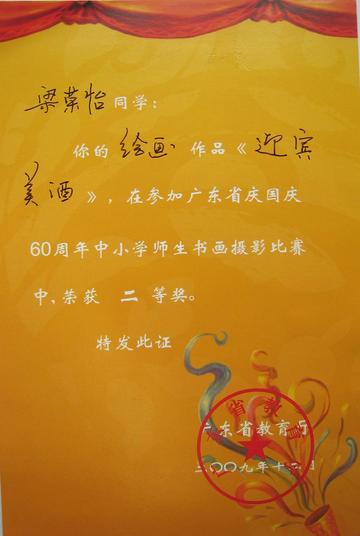 梁荣怡同学：
你的绘画作品《迎宾
美酒》，在参加广东省庆国庆
60周年中小学师生书画摄影比赛
中，荣获 二 等奖。
特发此证
广东省教育厅
二〇〇九年十二月